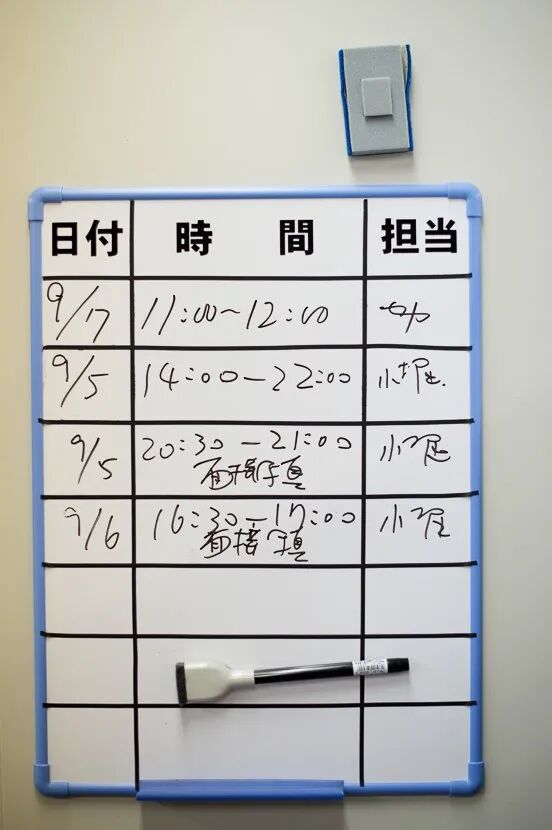 日付 時間 担当
9/17 11:00~12:00
9/5 14:00-22:00 小堀
9/5 20:30-21:00 小堀
面接写真
9/6 16:30-17:00 小堀
面接写真